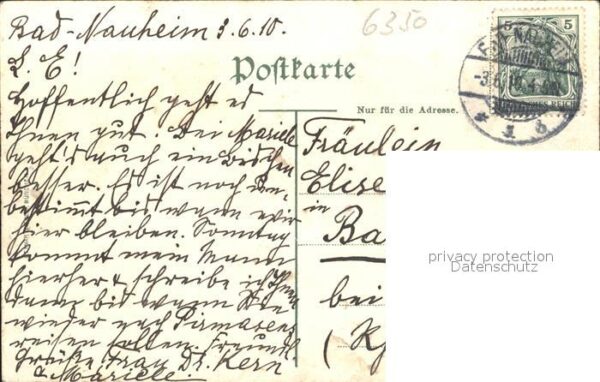 Bad-Nauheim 3.6.10.
6350
L. E!
Hoffentlich geht es
Ihnen gut. Bei Mariele
geht's auch ein bischen
besser. Es ist noch un-
bestimmt bis wann wir
hier bleiben. Sonntag
kommt mein Mann
hierher & schreibe ich Ihnen
dann bis wann Sie
wieder nach Pirmasens
reisen sollen. Freundl.
Grüße Frau Dr. Kern
& Mariele.
Postkarte
Nur für die Adresse.
5 5
Fräulein
Elise
in
Ba
bei
(
privacy protection
Datenschutz